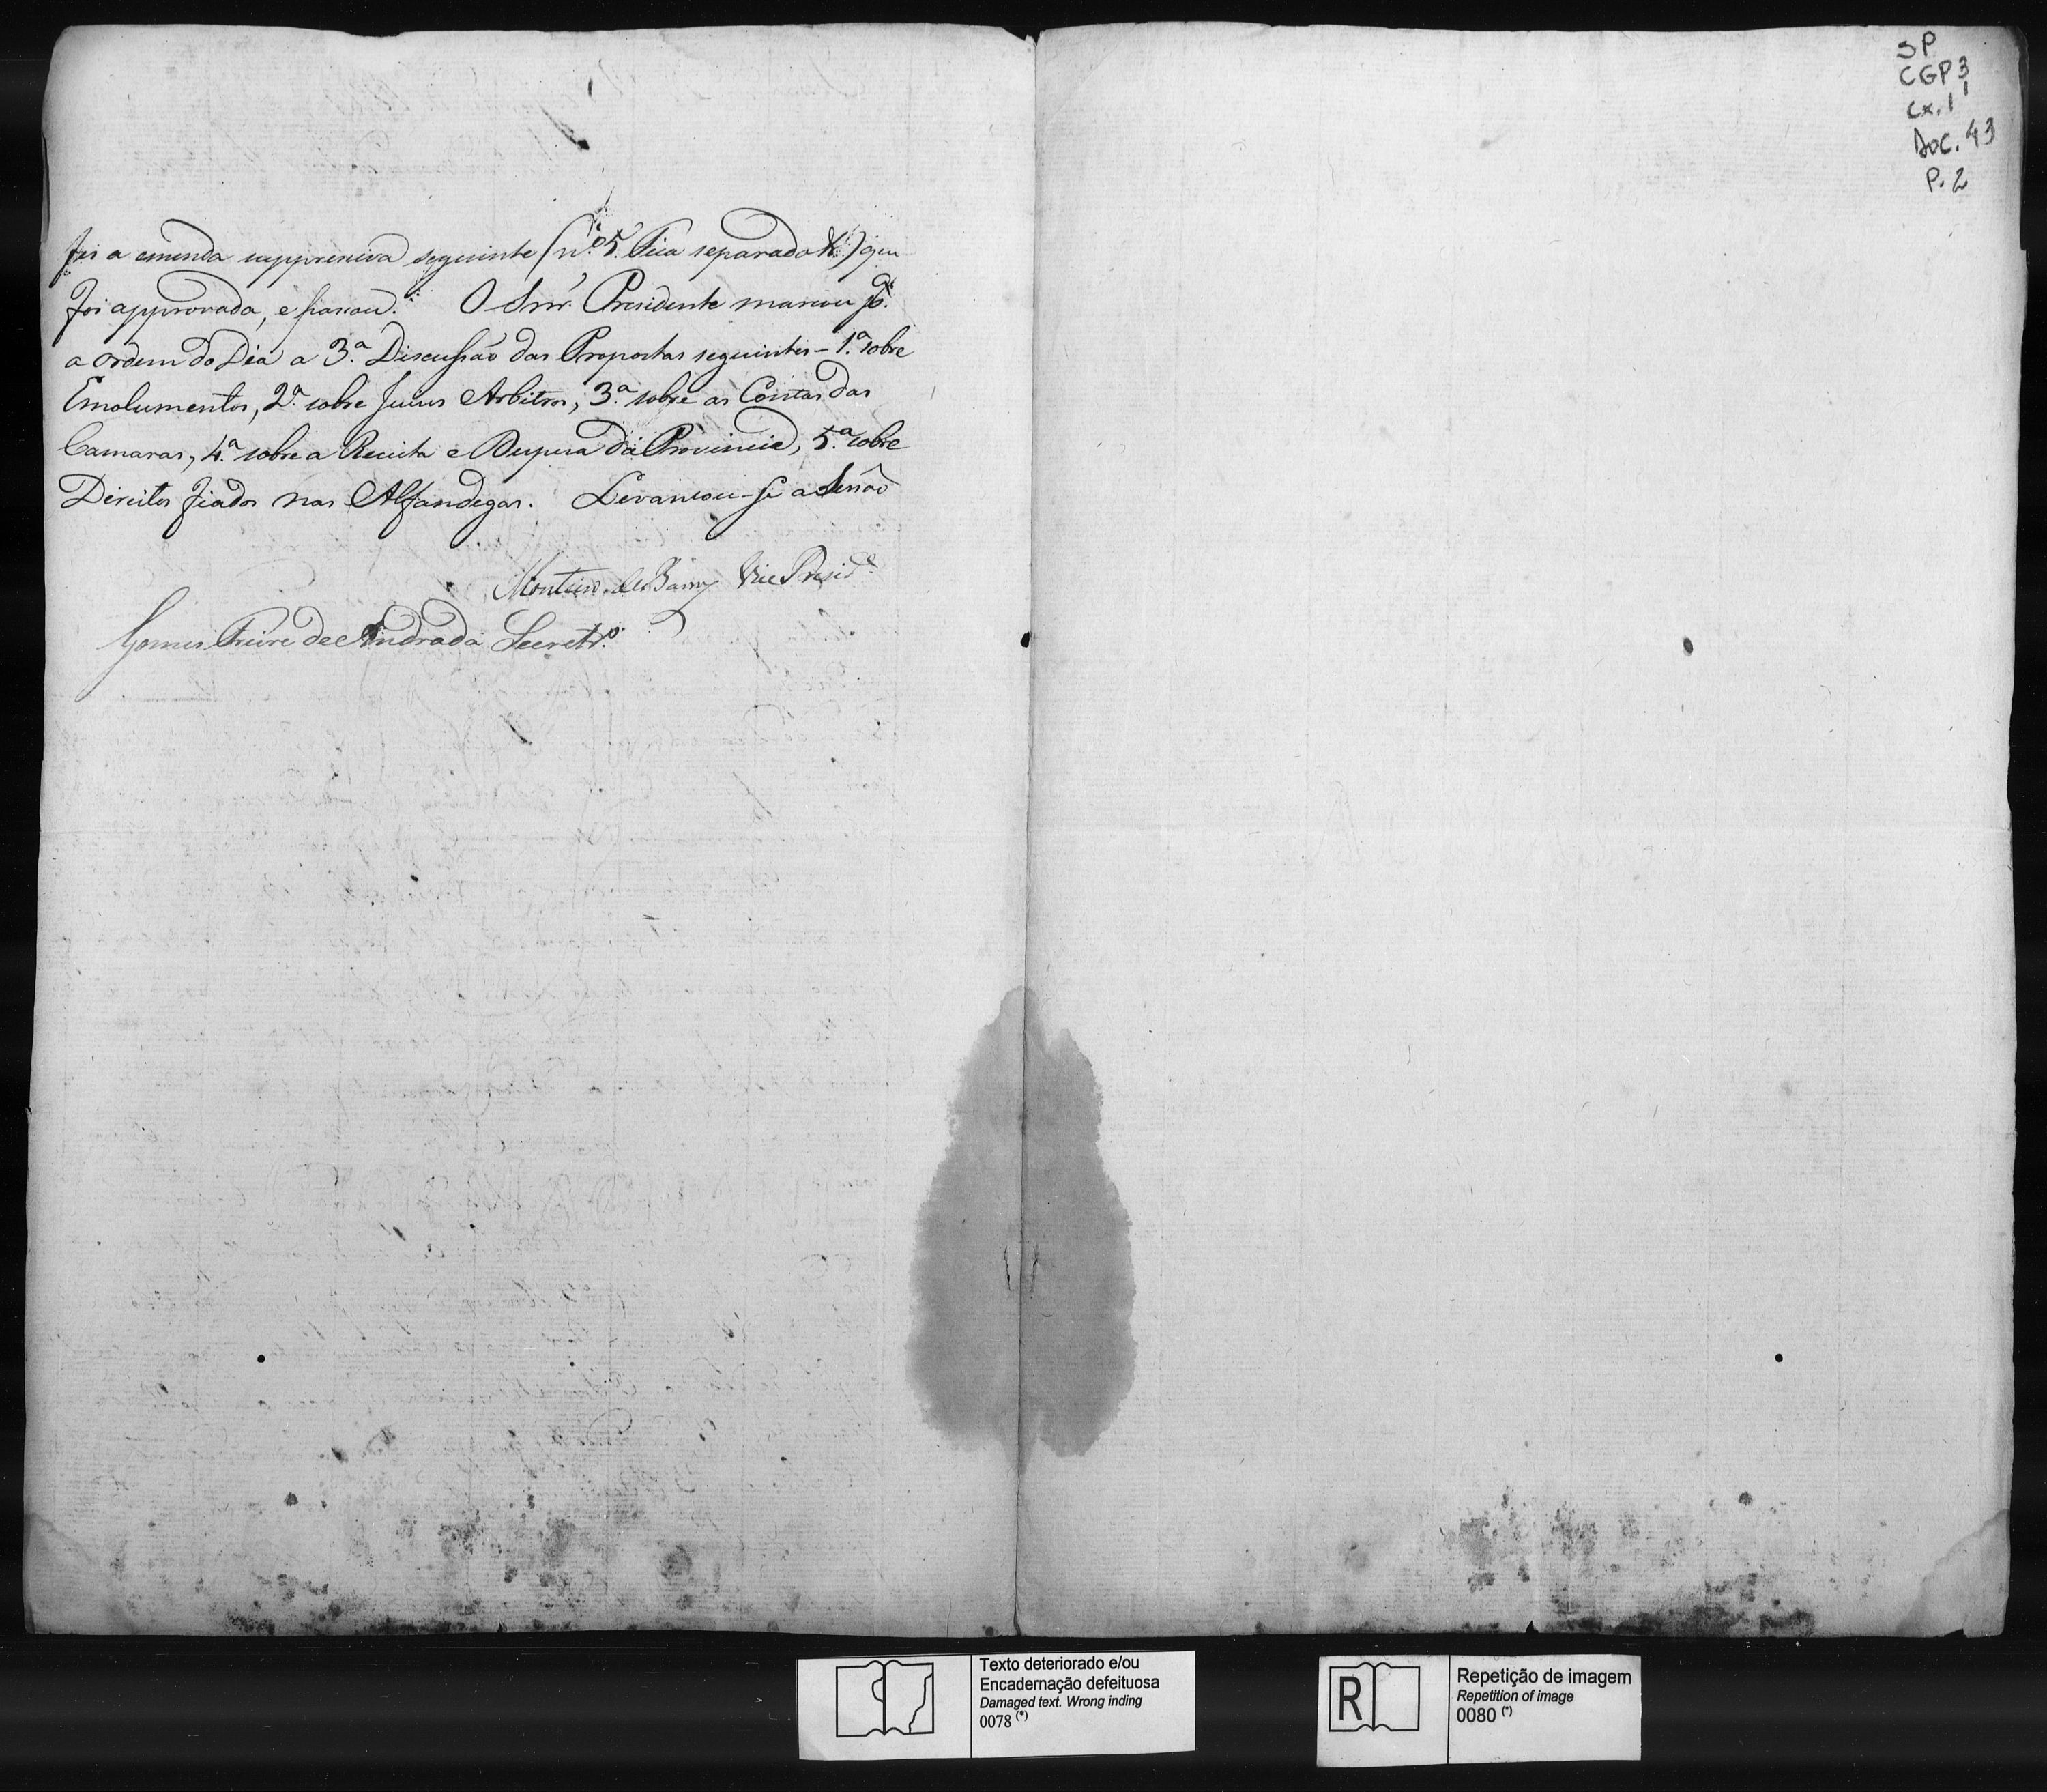 fez a emenda suppressiva seguinte (n.º 5. Fica separado &.) que
foi approvada, e passou. O Snr. Presidente marcou pª.
a ordem do Dia a 3.ª Discussão das Propostas seguintes - 1.ª sobre
Emolumentos, 2.ª sobre Juises Arbitros, 3.ª sobre as Contas das
Camaras, 4.ª sobre a Receita e Despesa da Provincia, 5.ª sobre
Direitos fiados nas Alfandegas. Levantou-se a Sessão
Monteiro de Barros Vice Presid.e
Gomes Freire de Andrada Secretr.º
SP
CGP 3
Cx. 1
Doc. 43
P. 2
Texto deteriorado e/ou
Encadernação defeituosa
Damaged text. Wrong inding
0078 (*)
R
Repetição de imagem
Repetition of image
0080 (*)